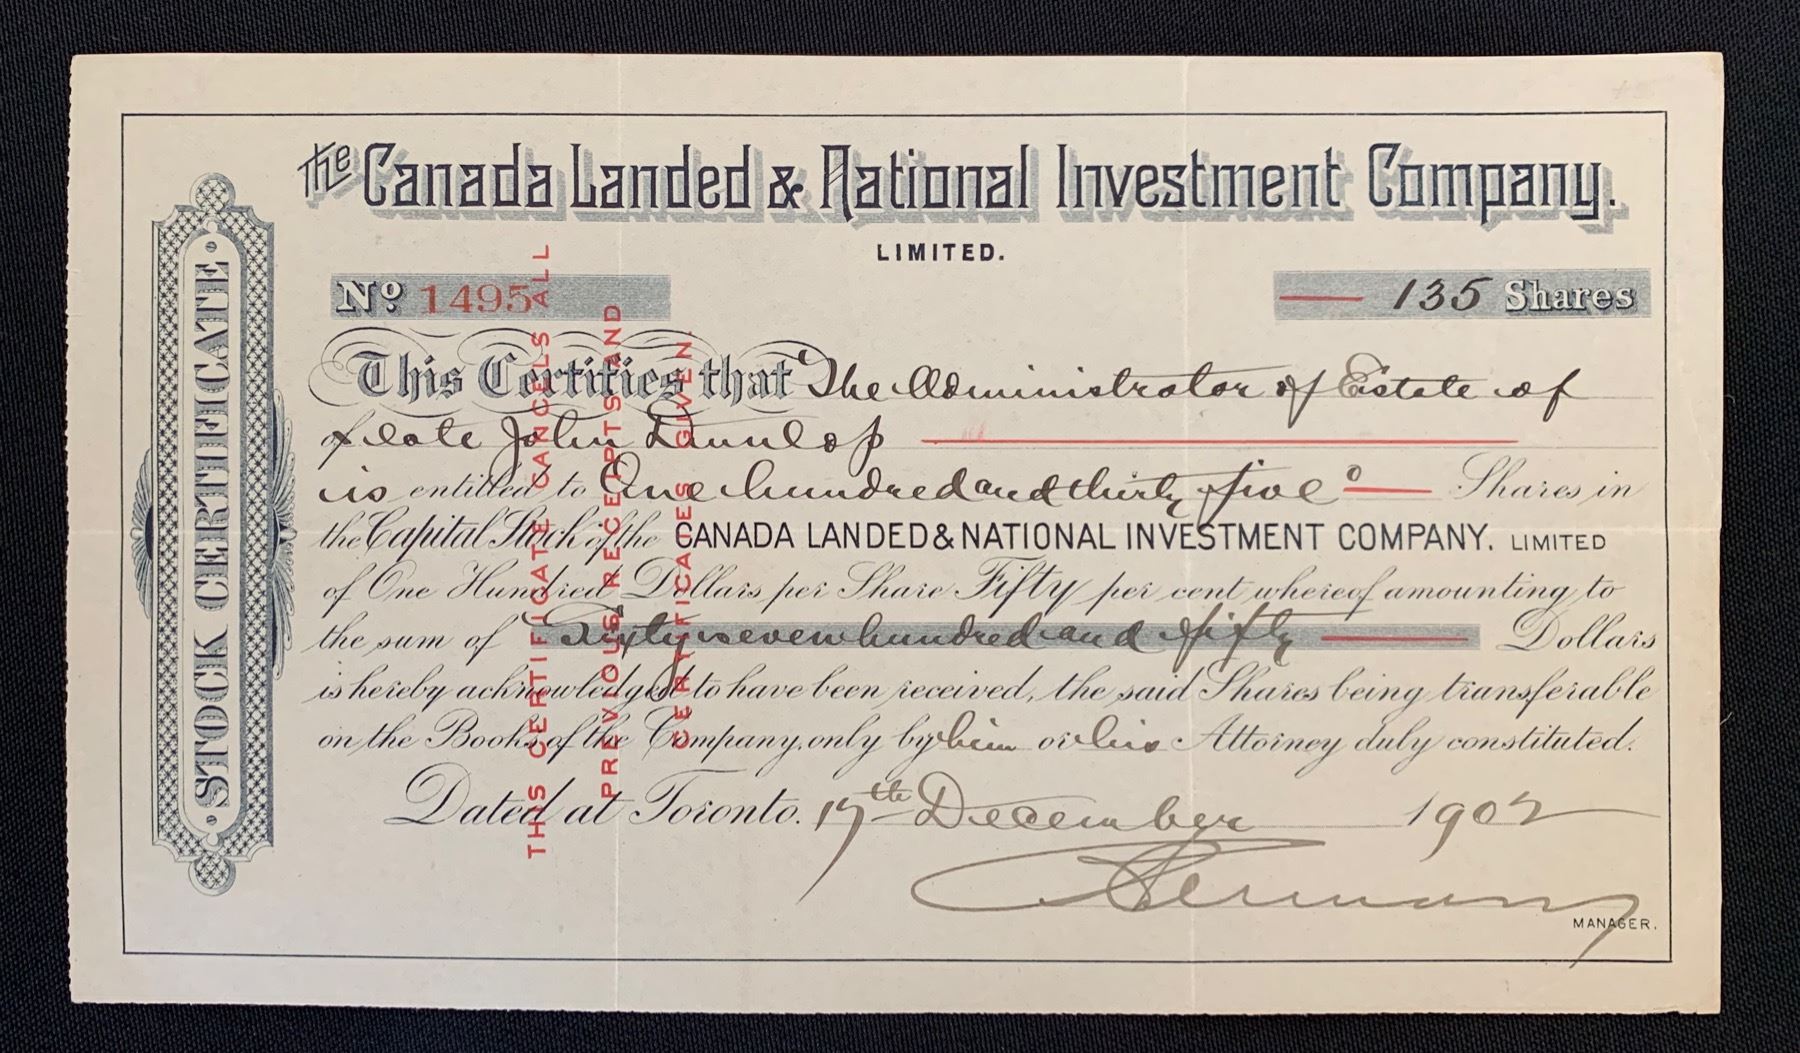 The Canada Landed & National Investment Company.
LIMITED.
No 1495
135 Shares
This Certifies that The Administrator of Estate of
of late John Dunlop
is entitled to One hundred and thirty five Shares in
the Capital Stock of the CANADA LANDED & NATIONAL INVESTMENT COMPANY. LIMITED
of One Hundred Dollars per Share Fifty per cent whereof amounting to
the sum of Sixty seven hundred and fifty Dollars
is hereby acknowledged to have been received, the said Shares being transferable
on the Books of the Company, only by him or his Attorney duly constituted.
Dated at Toronto. 17th December 1902
MANAGER.
STOCK CERTIFICATE
THIS CERTIFICATE CANCELS ALL
PREVIOUS RECEIPTS AND
CERTIFICATES GIVEN.